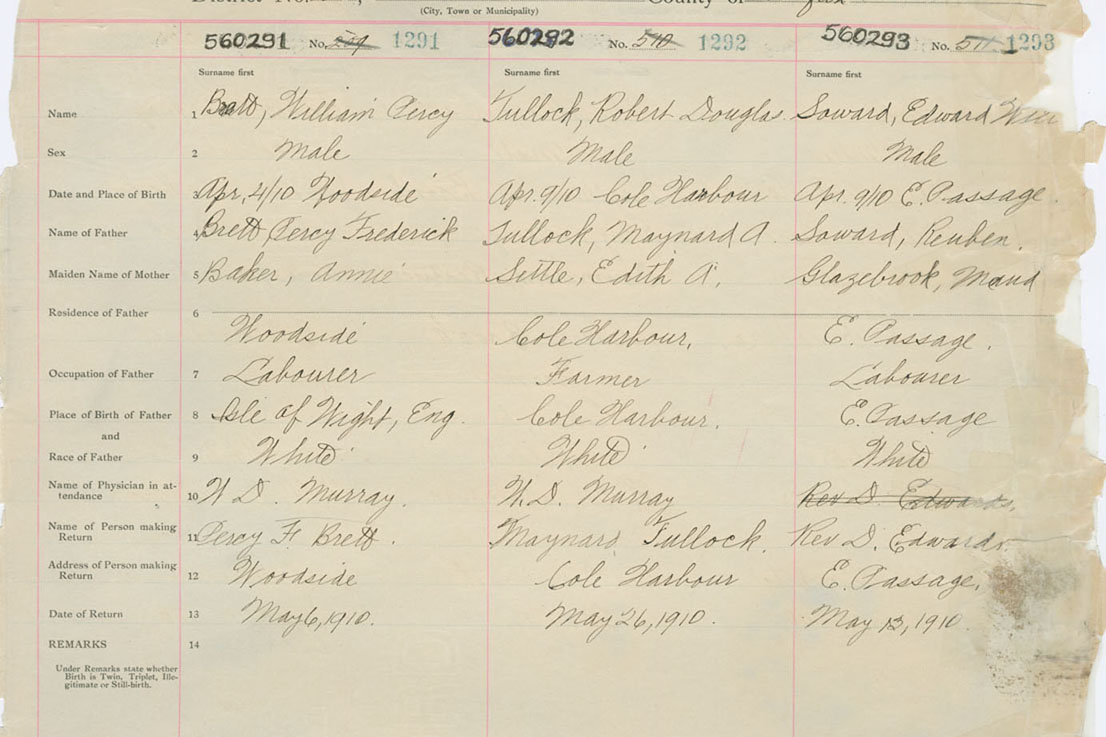 District No. County of
(City, Town or Municipality)
560291 No. 509 1291 560292 No. 510 1292 560293 No. 511 1293
Surname first Surname first Surname first
Name 1 Brett, William Percy Tullock, Robert Douglas Soward, Edward
Sex 2 Male Male Male
Date and Place of Birth 3 Apr. 4/10 Woodside Apr. 9/10 Cole Harbour Apr. 9/10 E. Passage
Name of Father 4 Brett, Percy Frederick Tullock, Maynard A. Soward, Reuben.
Maiden Name of Mother 5 Baker, Annie Settle, Edith A. Glazebrook, Maud
Residence of Father 6
Woodside Cole Harbour, E. Passage.
Occupation of Father 7 Labourer Farmer Labourer
Place of Birth of Father 8 Isle of Wight, Eng. Cole Harbour, E. Passage
and
Race of Father 9 White White White
Name of Physician in at-
tendance 10 W. D. Murray. W. D. Murray Rev D. Edwards,
Name of Person making
Return 11 Percy F. Brett. Maynard Tullock. Rev D. Edwards
Address of Person making
Return 12 Woodside Cole Harbour E. Passage.
Date of Return 13 May 6, 1910. May 26, 1910. May 13, 1910.
REMARKS 14
Under Remarks state whether
Birth is Twin, Triplet, Ille-
gitimate or Still-birth.